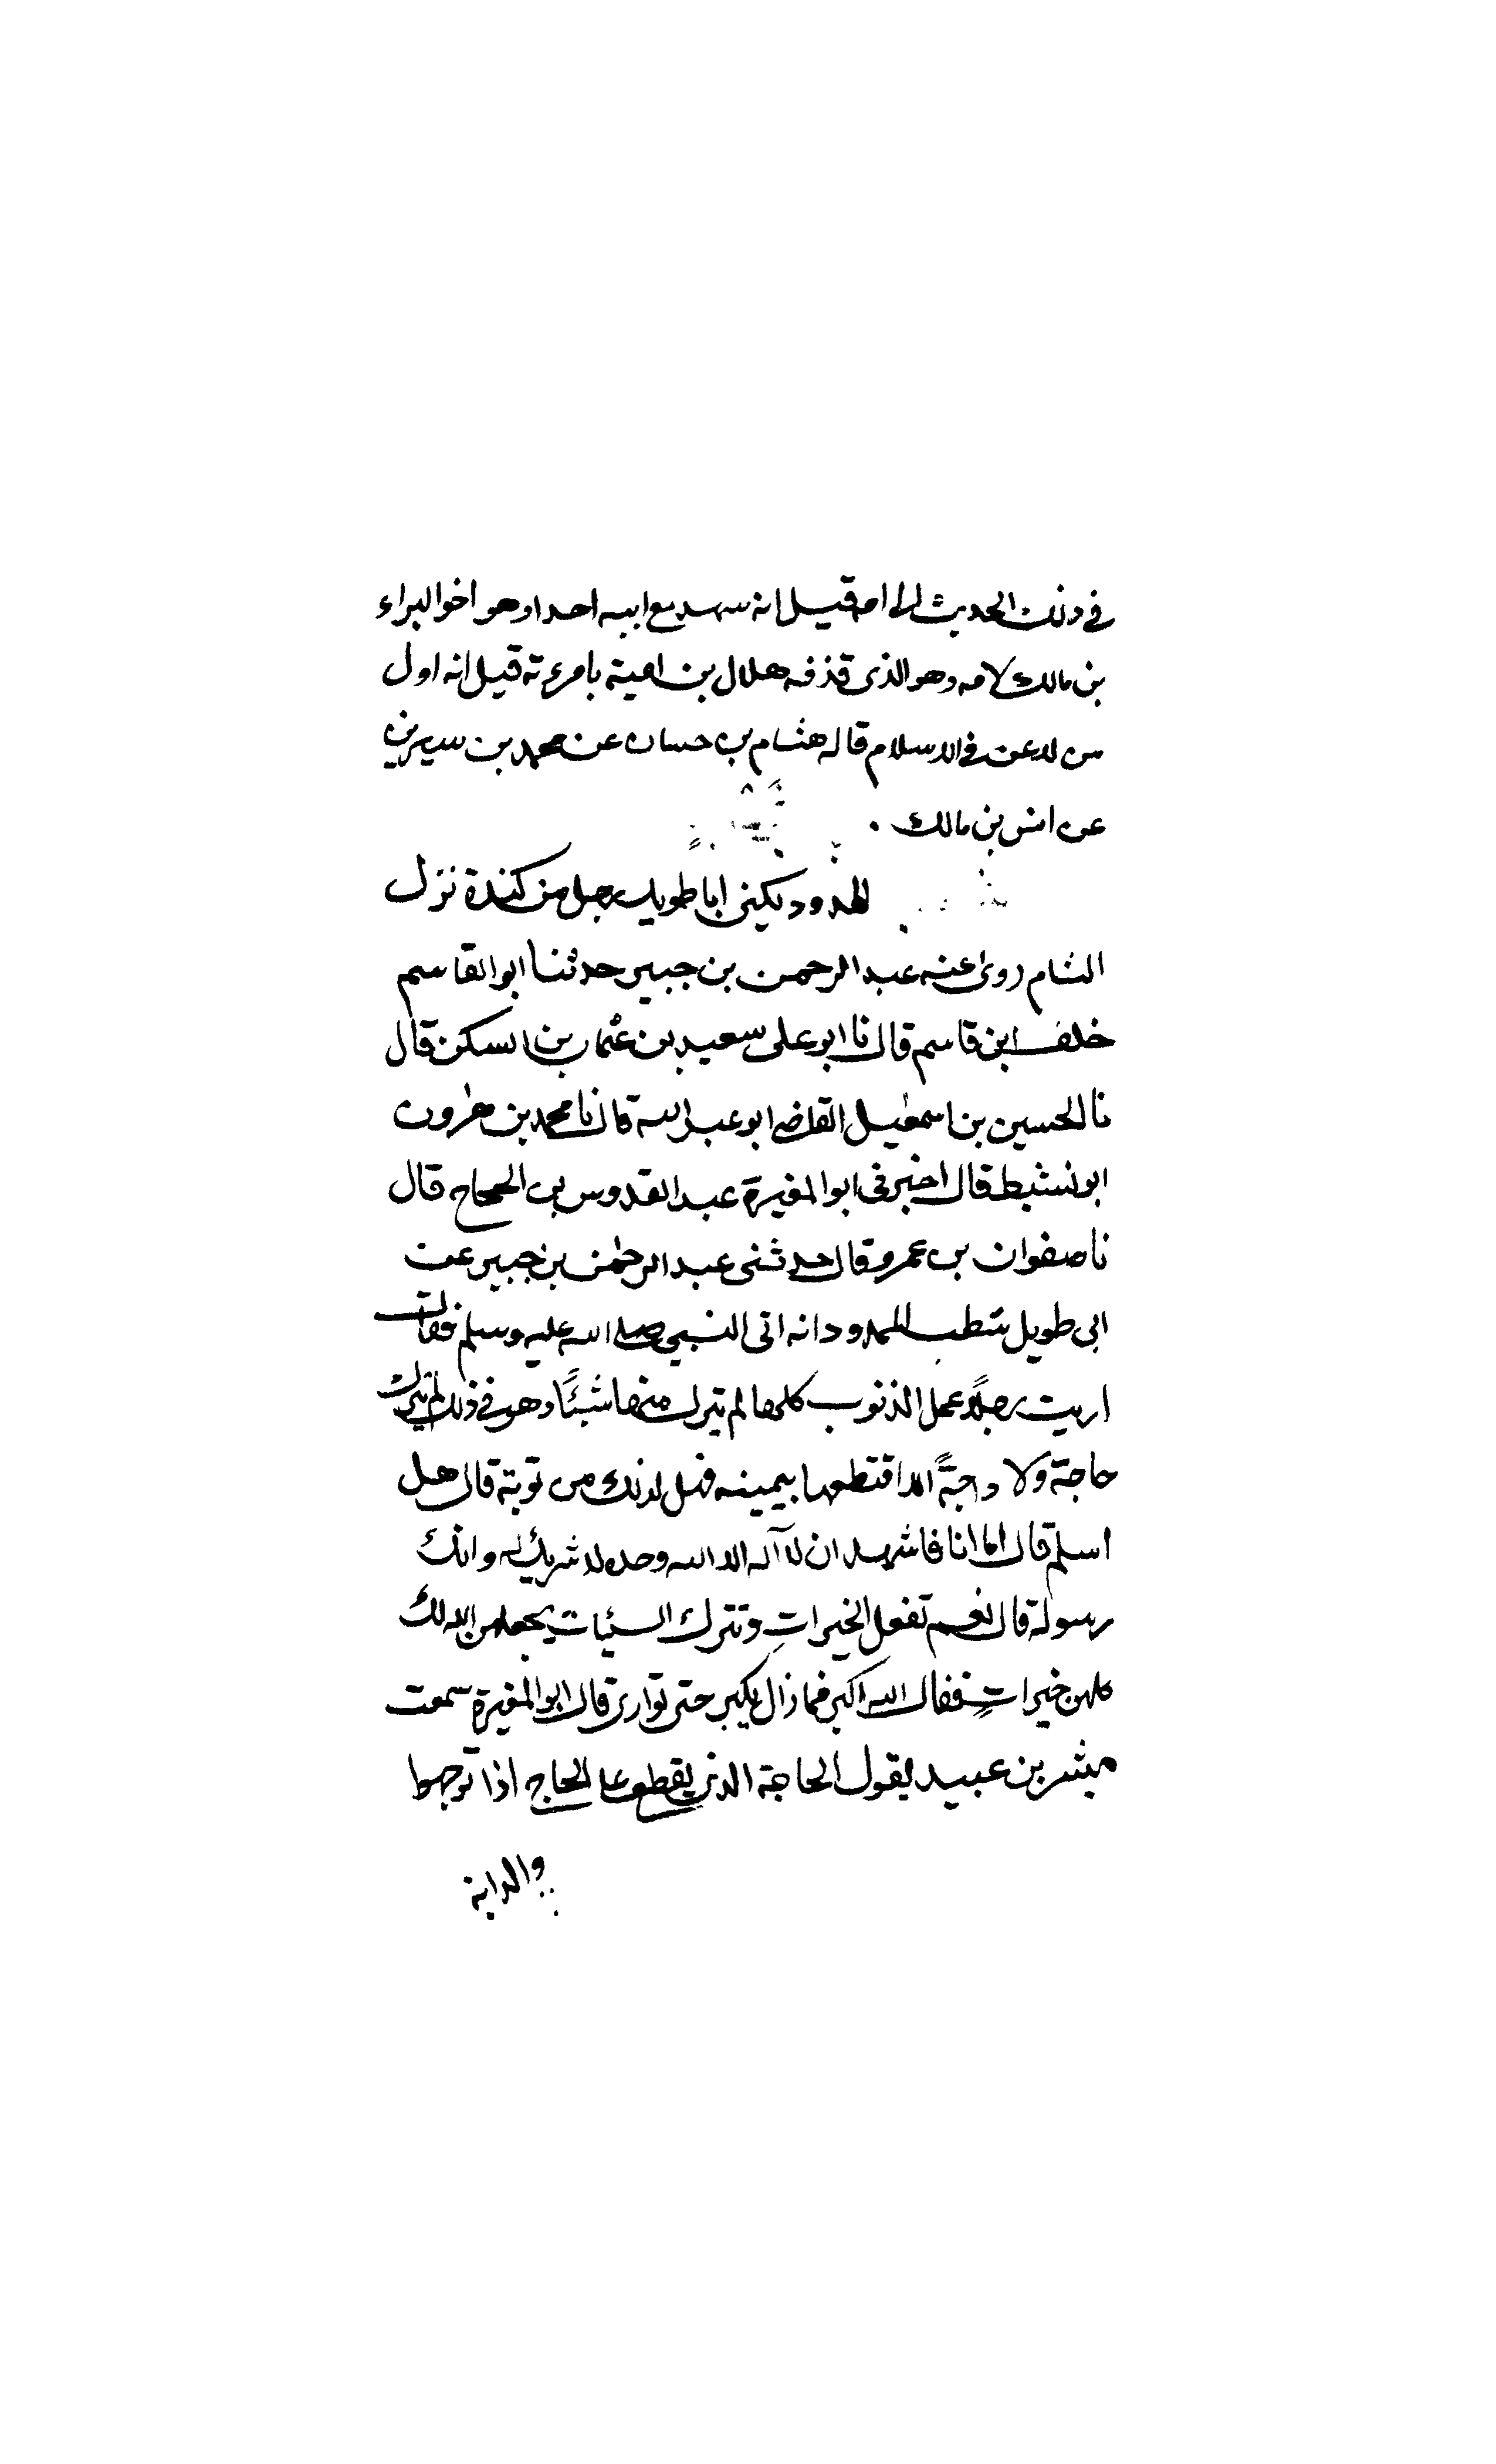 في ذلك الحديث الى امه قيل انه شهد مع ابيه احدا وهو اخو البراء
بن مالك لامه وهو الذى قذفه هلال بن امية بامرءته قيل انه اول
من لاعن في الاسلام قاله هشام بن حسان عن محمد بن سيرين
عن انس بن مالك .
الممدود يكنى ابا طويل رجل من كندة نزل
الشام روى عنه عبد الرحمن بن جبير حدثنا ابو القاسم
خلف ابن قاسم قال نا ابو على سعيد بن عثمان بن السكن قال
نا الحسين بن اسمعيل القاضى ابو عبد الله قال نا محمد بن هرون
ابو نشيط قال اخبرنى ابو المغيرة عبد القدوس بن الحجاج قال
نا صفوان بن عمرو قال حدثنى عبد الرحمن بن جبير عن
ابى طويل شطب الممدود انه اتى النبي صلى الله عليه وسلم فقال
اريت رجلاً عمل الذنوب كلها لم يترك منها شيئًا وهو في ذلك لم يترك
حاجة ولا داجةً الا اقتطعها بيمينه فهل لذلك من توبة قال هل
اسلم قال اما انا فاشهد ان لا آله الا الله وحده لا شريك له وانك
رسوله قال نعم تفعل الخيراتِ وتترك السيئات يجعلهن الله لك
كلهن خيراتٍ فقال الله اكبر فما زال يكبر حتى توارى قال ابو المغيرة سمعت
مبشر بن عبيد يقول الحاجة الذى يقطع على الحاج اذا توجهوا
والداجة